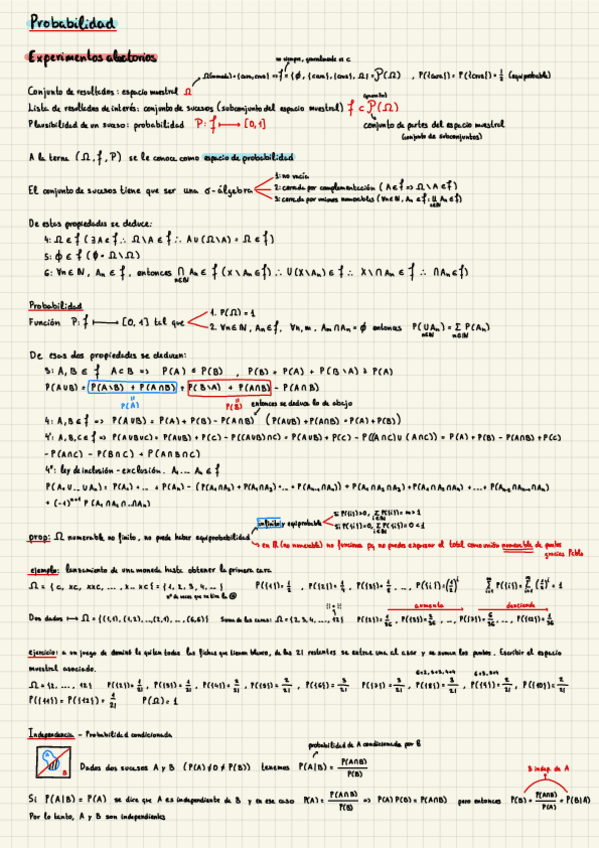 Probabilidad
Experimentos aleatorios
no siempre, generalmente es c
Ω(moneda)={cara,cruz} => f = {ϕ, {cara}, {cruz}, Ω} = P(Ω) , P({cara}) = P({cruz}) = 1/2 (equiprobable)
Conjunto de resultados: espacio muestral Ω
Lista de resultados de interés: conjunto de sucesos (subconjunto del espacio muestral) f ⊂ P(Ω)
Plausibilidad de un suceso: probabilidad P: f ⟼ [0,1]
conjunto de partes del espacio muestral
(conjunto de subconjuntos)
A la terna (Ω, f, P) se le conoce como espacio de probabilidad
El conjunto de sucesos tiene que ser una σ-álgebra
1: no vacía
2: cerrada por complementación (A ∈ f => Ω\A ∈ f)
3: cerrada por uniones numerables (∀n∈ℕ, An ∈ f; ∪ An ∈ f)
n∈ℕ
De estas propiedades se deduce:
4: Ω ∈ f (∃A ∈ f ∴ Ω\A ∈ f ∴ A∪(Ω\A) = Ω ∈ f)
5: ϕ ∈ f (ϕ = Ω\Ω)
6: ∀n∈ℕ, An ∈ f, entonces ∩ An ∈ f (X\An ∈ f) ∴ ∪(X\An) ∈ f ∴ X\∩An ∈ f ∴ ∩An ∈ f)
n∈ℕ
Probabilidad
Función P: f ⟼ [0,1] tal que
1. P(Ω) = 1
2. ∀n∈ℕ, An ∈ f, ∀n,m, Am ∩ An = ϕ entonces P(∪An) = Σ P(An)
n∈ℕ n∈ℕ
De esas dos propiedades se deducen:
3: A, B ∈ f A ⊂ B => P(A) ≤ P(B) , P(B) = P(A) + P(B\A) ≥ P(A)
P(A∪B) = P(A\B) + P(A∩B) + P(B\A) + P(A∩B) - P(A∩B)
P(A) P(B) entonces se deduce lo de abajo
4: A, B ∈ f => P(A∪B) = P(A) + P(B) - P(A∩B) (P(A∪B) + P(A∩B) = P(A) + P(B))
4': A, B, C ∈ f => P(A∪B∪C) = P(A∪B) + P(C) - P((A∪B)∩C) = P(A∪B) + P(C) - P((A∩C)∪(A∩C)) = P(A) + P(B) - P(A∩B) + P(C)
- P(A∩C) - P(B∩C) + P(A∩B∩C)
4'': ley de inclusión-exclusión. A1 ... An ∈ f
P(A1 ∪ ... ∪ An) = P(A1) + ... + P(An) - (P(A1∩A2) + P(A1∩A3) + ... + P(An-1∩An)) + P(A1∩A2∩A3) + P(A1∩A2∩A4) + ... + P(An-2∩An-1∩An)
+ (-1)^n+1 P(A1∩A2∩...∩An)
infinito y equiprobable
Si P({i})>0, Σ P({i}) = ∞ > 1
Si P({i})=0, Σ P({i}) = 0 < 1
prop: Ω numerable no finito, no puede haber equiprobabilidad
en ℝ (no numerable) no funciona pq no puedes expresar el total como unión numerable de puntos
gracias Pablo
ejemplo: lanzamiento de una moneda hasta obtener la primera cara
Ω = {c, xc, xxc, ..., x...xc} = {1, 2, 3, 4, ...} P({1}) = 1/2 , P({2}) = 1/4 , P({3}) = 1/8 , ..., P({i}) = (1/2)^i Σ P({i}) = Σ (1/2)^i = 1
Dos dados ⟼ Ω = {(1,1), (1,2), ..., (2,1), ..., (6,6)} Suma de las caras: Ω = {2, 3, 4, ..., 12} P({2}) = 1/36 , P({3}) = 2/36 , ..., P({7}) = 6/36 , ..., P({12}) = 1/36
aumenta desciende
ejercicio: a un juego de dominó le quitan todas las fichas que tienen blanco, de las 21 restantes se extrae una al azar y se suman los puntos. Escribir el espacio
muestral asociado.
Ω = {2, ..., 12} P({2}) = 1/21 , P({3}) = 1/21 , P({4}) = 2/21 , P({5}) = 2/21 , P({6}) = 3/21 P({7}) = 3/21 , P({8}) = 3/21 , P({9}) = 2/21 , P({10}) = 2/21
P({11}) = P({12}) = 1/21 P(Ω) = 1
Independencia - Probabilidad condicionada
probabilidad de A condicionada por B
A
B
Dados dos sucesos A y B (P(A) ≠ 0 ≠ P(B)) tenemos P(A|B) = P(A∩B)/P(B)
B indep. de A
Si P(A|B) = P(A) se dice que A es independiente de B y en ese caso P(A) = P(A∩B)/P(B) => P(A)P(B) = P(A∩B) pero entonces P(B) = P(A∩B)/P(A) = P(B|A)
Por lo tanto, A y B son independientes